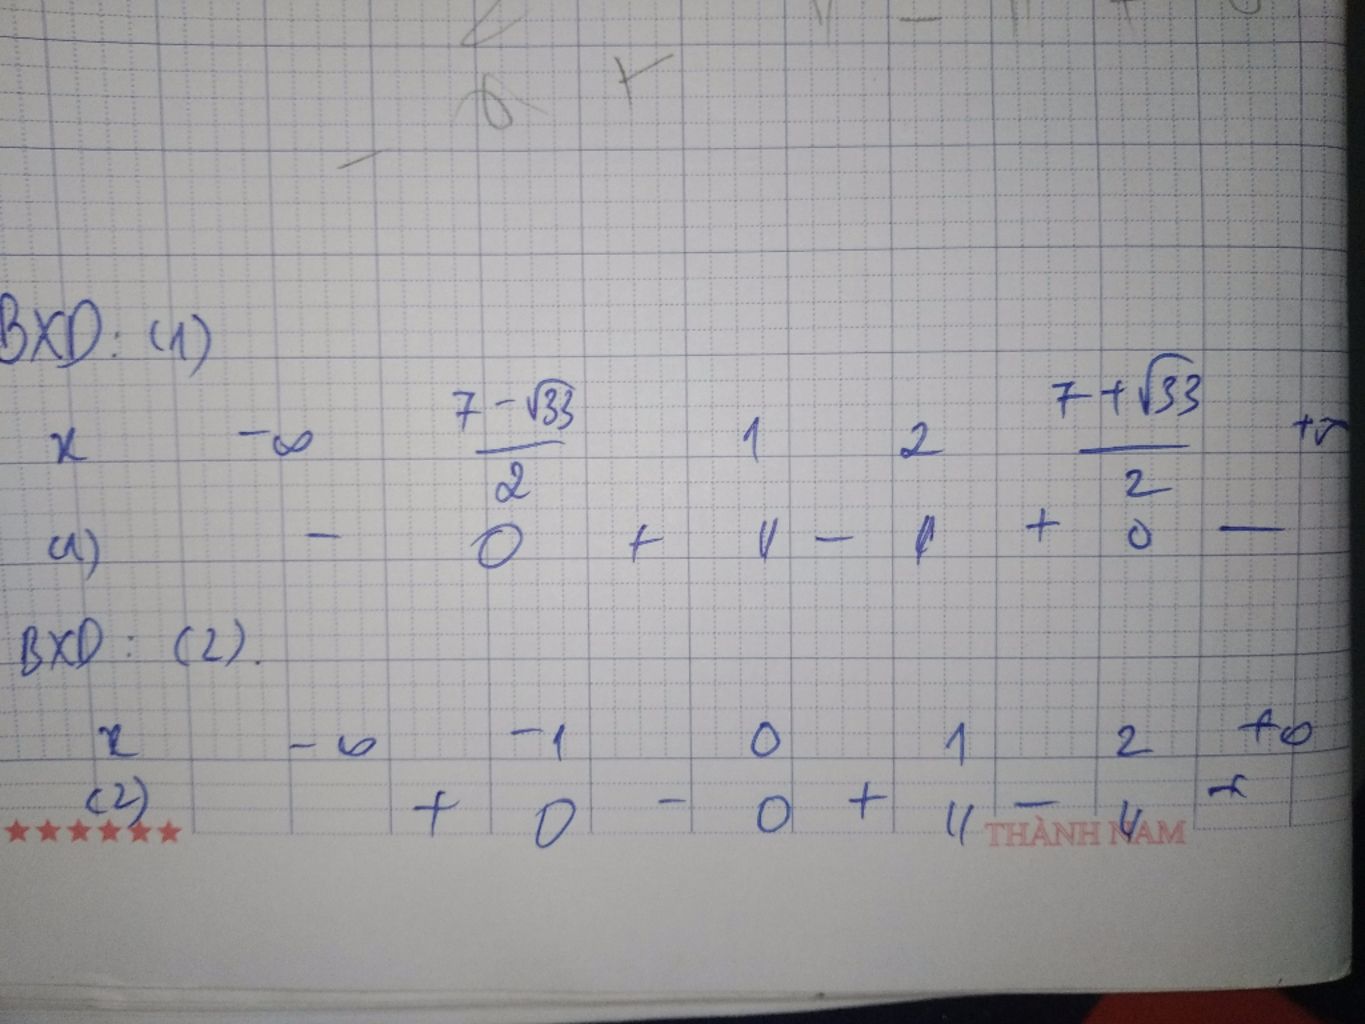 BXD: (1)
x -∞ (7-√33)/2 1 2 (7+√33)/2
(1) - 0 + || - || + 0 -
BXD: (2).
x -∞ -1 0 1 2 +∞
(2) + 0 - 0 + || - || +
★★★★★★ THÀNH NAM